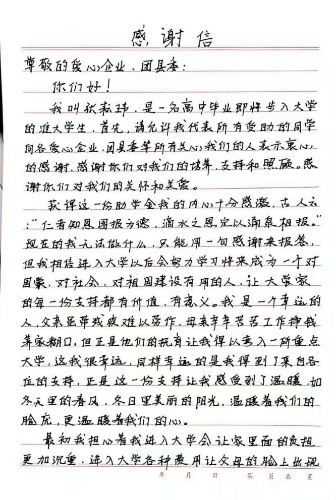 感谢信
尊敬的爱心企业、团县委：
你们好！
我叫，是一名高中毕业即将步入大学
的准大学生，首先，请允许我代表所有受助的同学
向各爱心企业，团县委等所有关心我们的人表示衷心
的感谢，感谢你们对我们的培养，支持和照顾。感
谢你们对我们的关怀和关爱。
获得这一份助学金我的内心十分感激，古人云
："仁者知恩图报为德，滴水之恩定以涌泉相报。"
现在的我无法做什么，只能用一句感谢来报答，
但我相信进入大学以后会努力学习将来成为一个对
国家，对社会，对祖国建设有用的人，让大学家
的每一份支持都有价值，有意义。我是一个幸运的
人，父亲患带残疲难以劳作，母亲辛辛苦苦工作挣钱
养家糊口，但正是他们的抚育让我得以考入一所重点
大学，这我很幸运，同样幸运的是我得到了来自各
位的支持，正是这一份支持让我感受到了温暖，如
冬天里的春风，冬日里美丽的阳光，温暖着我们的
脸庞，更温暖着我们的心。
最初我担心着我进入大学会让家里面的负担
更加沉重，进入大学各种费用让父母的脸上出现
年 月 日 第 页 共 页